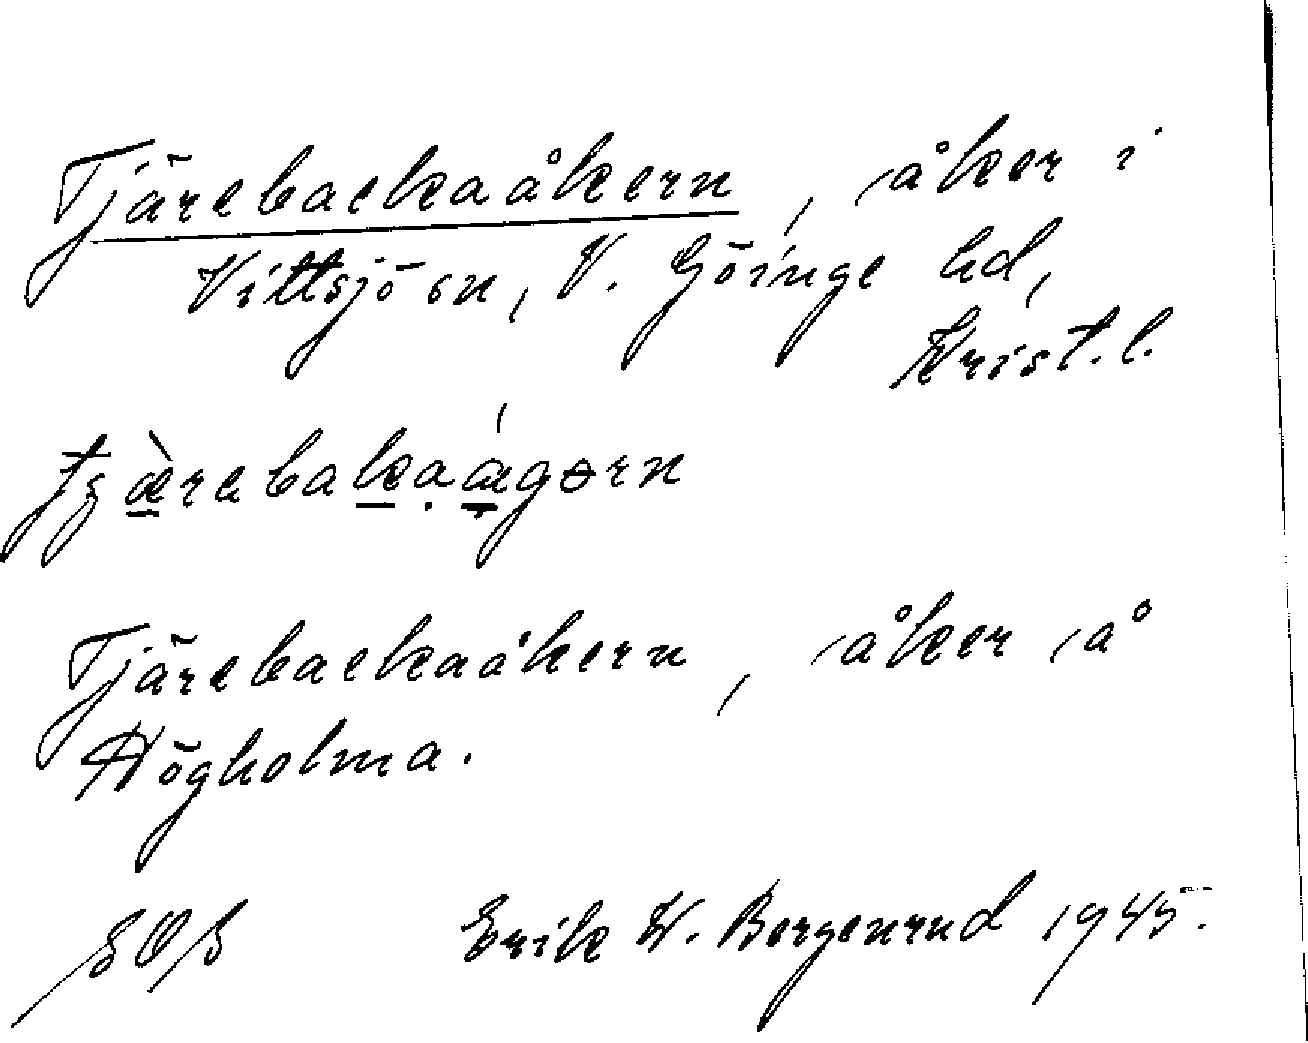 Tjärebackaåkern, åker i
Vittsjö sn, V. Göinge hd,
Krist. l.
Tjärebackaåkern, åker å
Högholma.
Erik W. Bergenrud 1945.